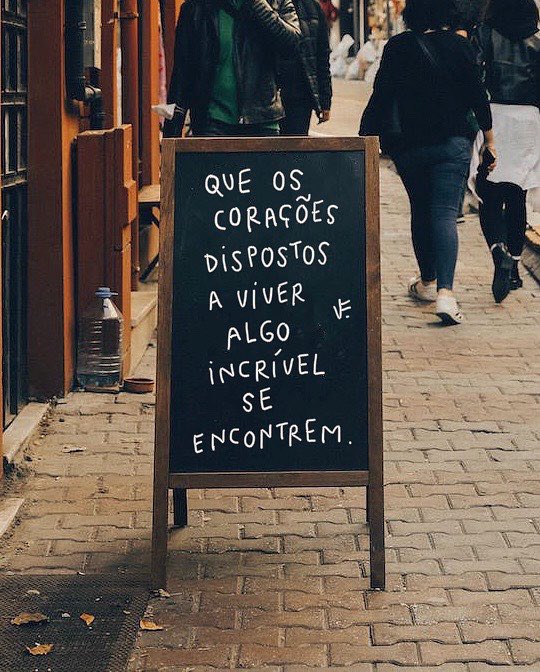 QUE OS
CORAÇÕES
DISPOSTOS
A VIVER
ALGO
INCRÍVEL
SE
ENCONTREM.